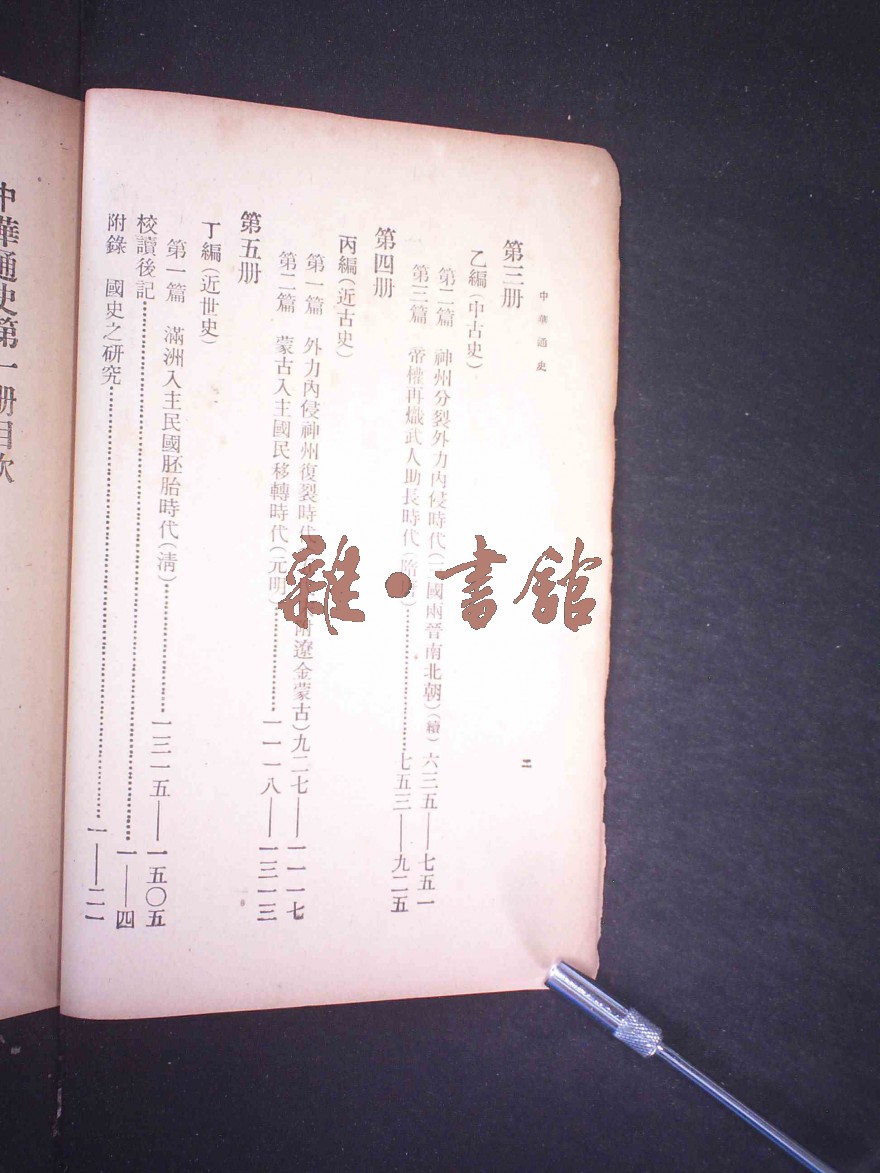 中華通史
二
第三册
乙編(中古史)
第二篇 神州分裂外力內侵時代(三國兩晉南北朝)(續)六三五——七五一
第三篇 帝權再熾武人助長時代(隋唐)……七五三——九二五
第四册
丙編(近古史)
第一篇 外力內侵神州復裂時代 附遼金蒙古)九二七——一一一七
第二篇 蒙古入主國民移轉時代(元明)……一一一八——一三一三
第五册
丁編(近世史)
第一篇 滿洲入主民國胚胎時代(清)……一三一五——一五〇五
校讀後記……一——四
附錄 國史之研究……一——二一
中華通史第一册目次
雜·書館